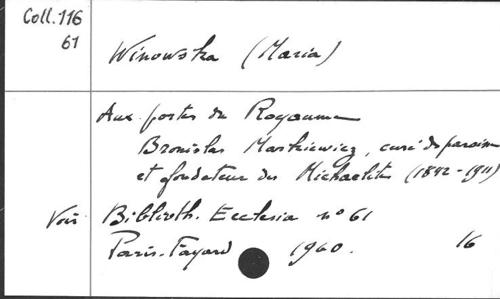 Coll. 116
61
Winowska (Maria)
Aux portes du Royaume
Bronislas Markiewicz, curé de paroisse
et fondateur des Michaelites (1842-1911)
Voir Biblioth. Ecclesia n° 61
Paris-Fayard 1960. 16